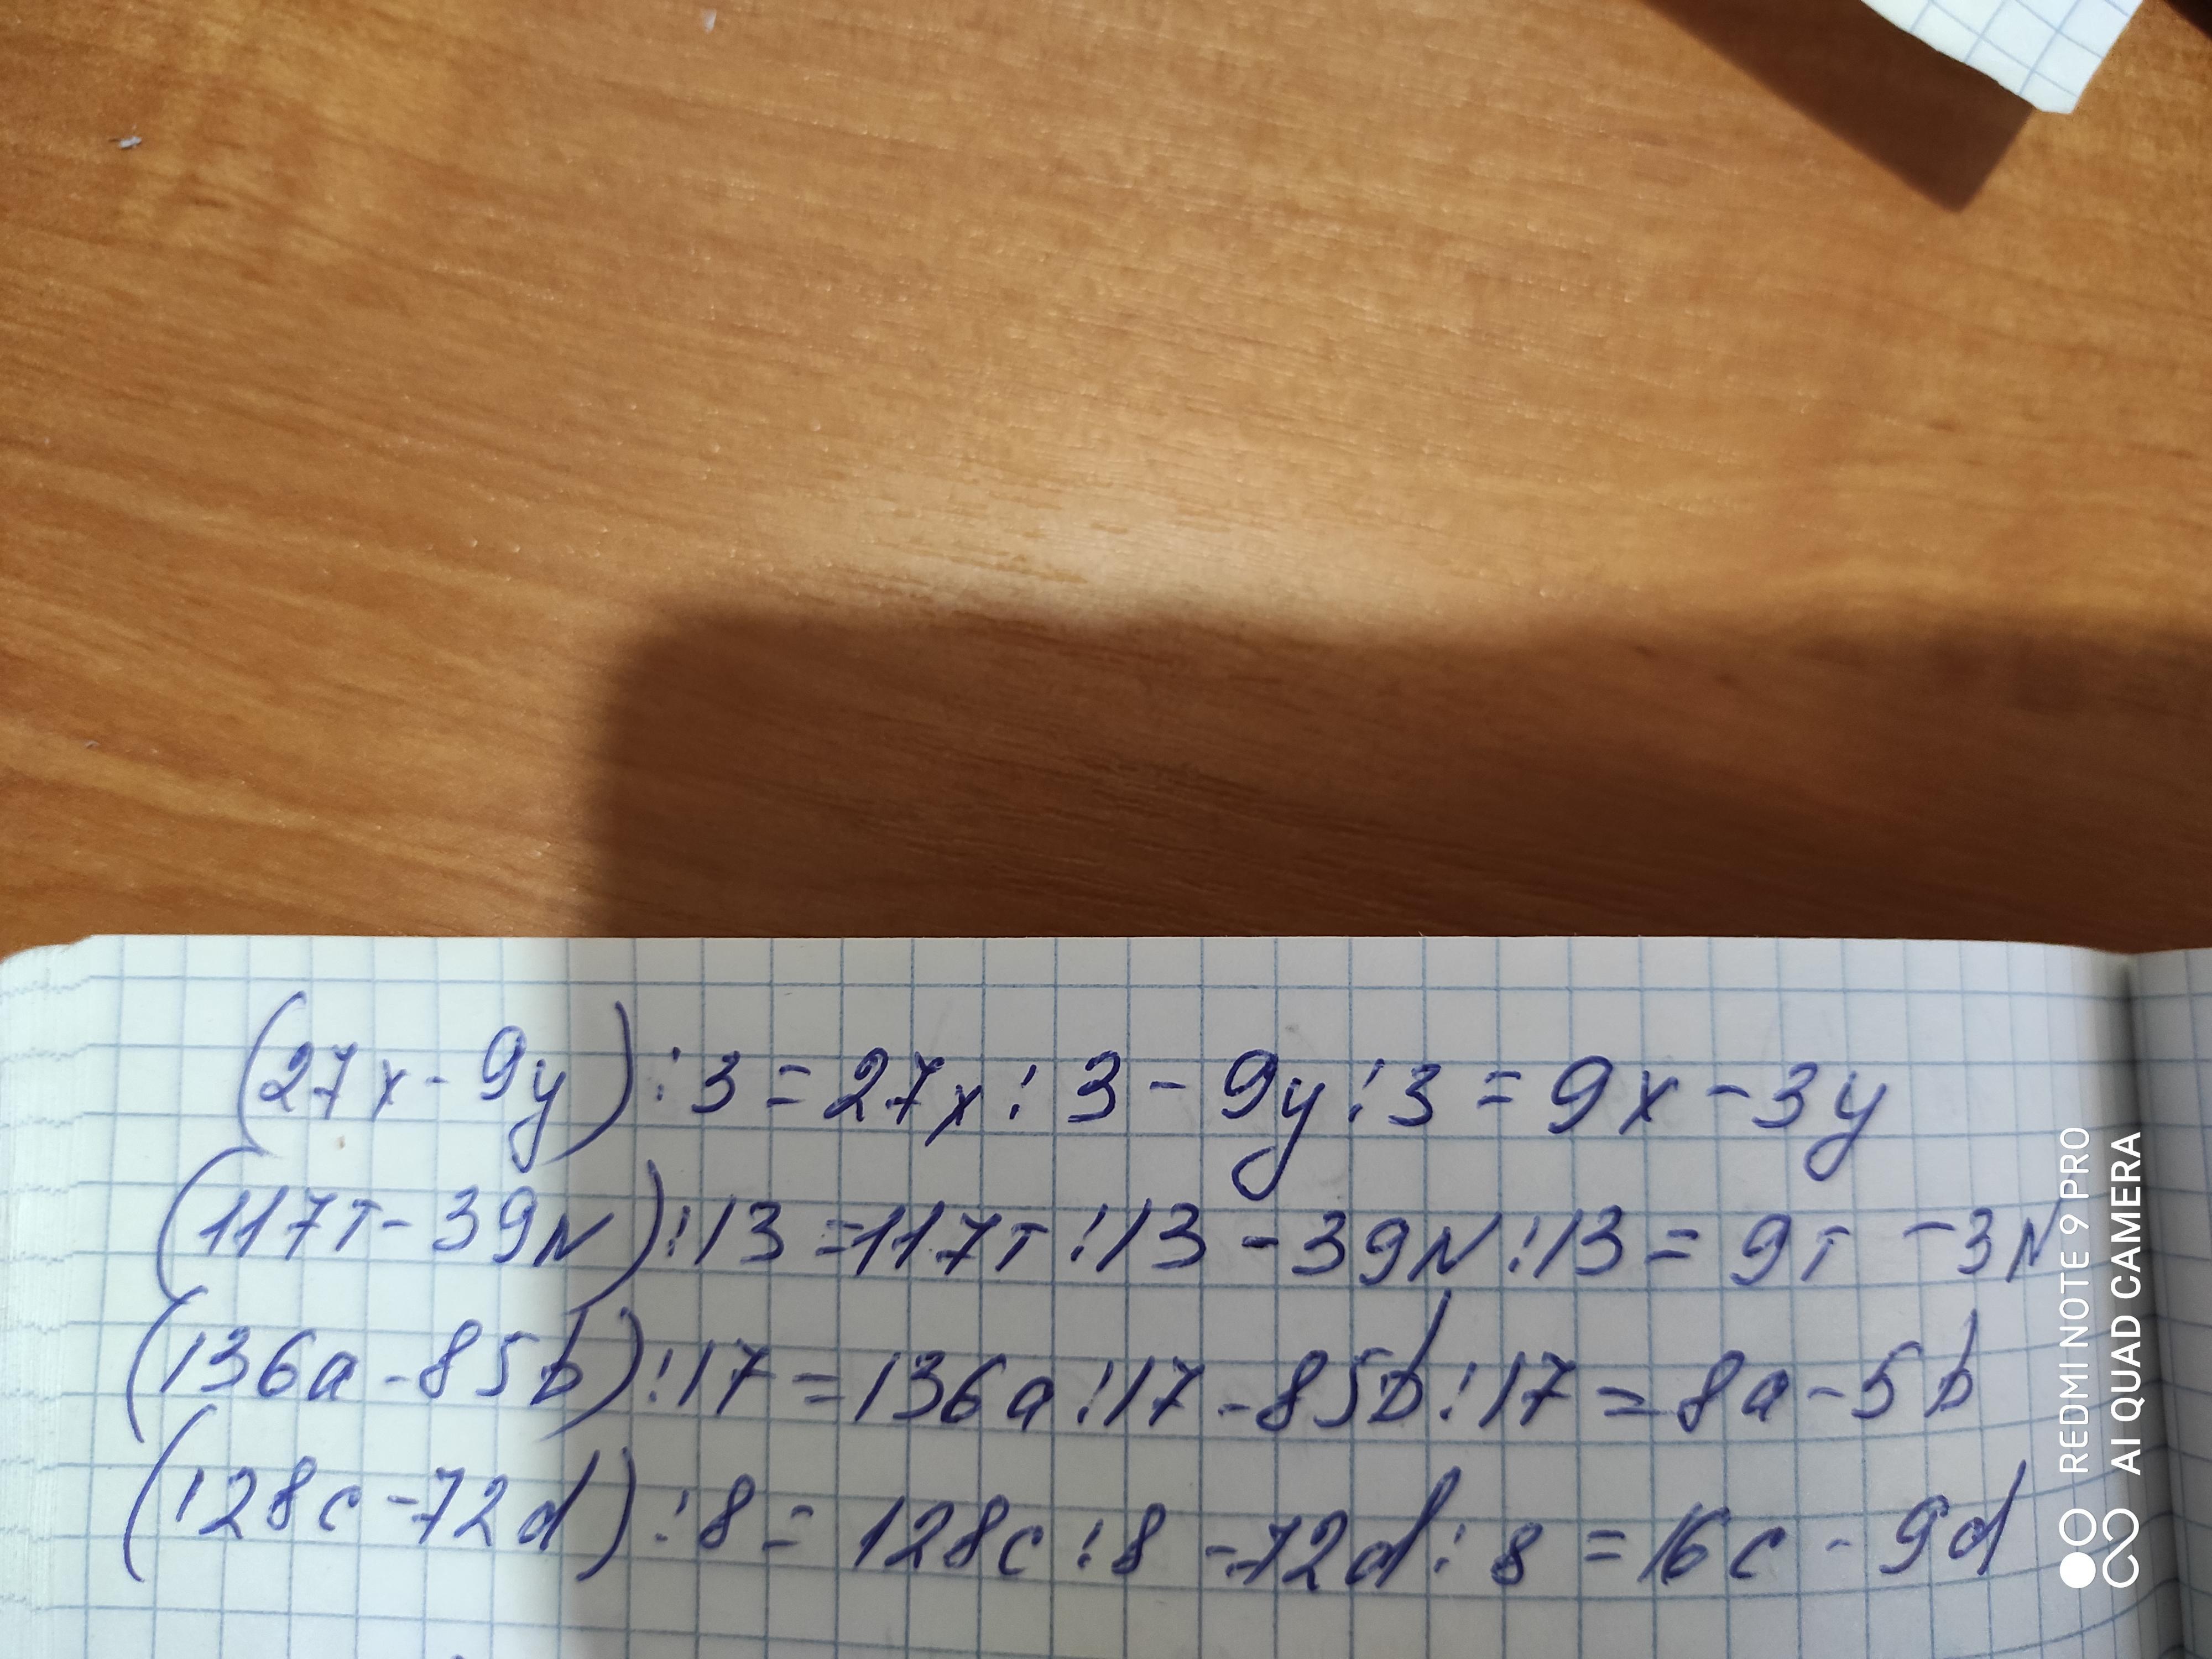 (27x - 9y) : 3 = 27x : 3 - 9y : 3 = 9x - 3y
(117т - 39N) : 13 = 117т : 13 - 39N : 13 = 9т - 3N
(136a - 85b) : 17 = 136a : 17 - 85b : 17 = 8a - 5b
(128c - 72d) : 8 = 128c : 8 - 72d : 8 = 16c - 9d
REDMI NOTE 9 PRO
AI QUAD CAMERA